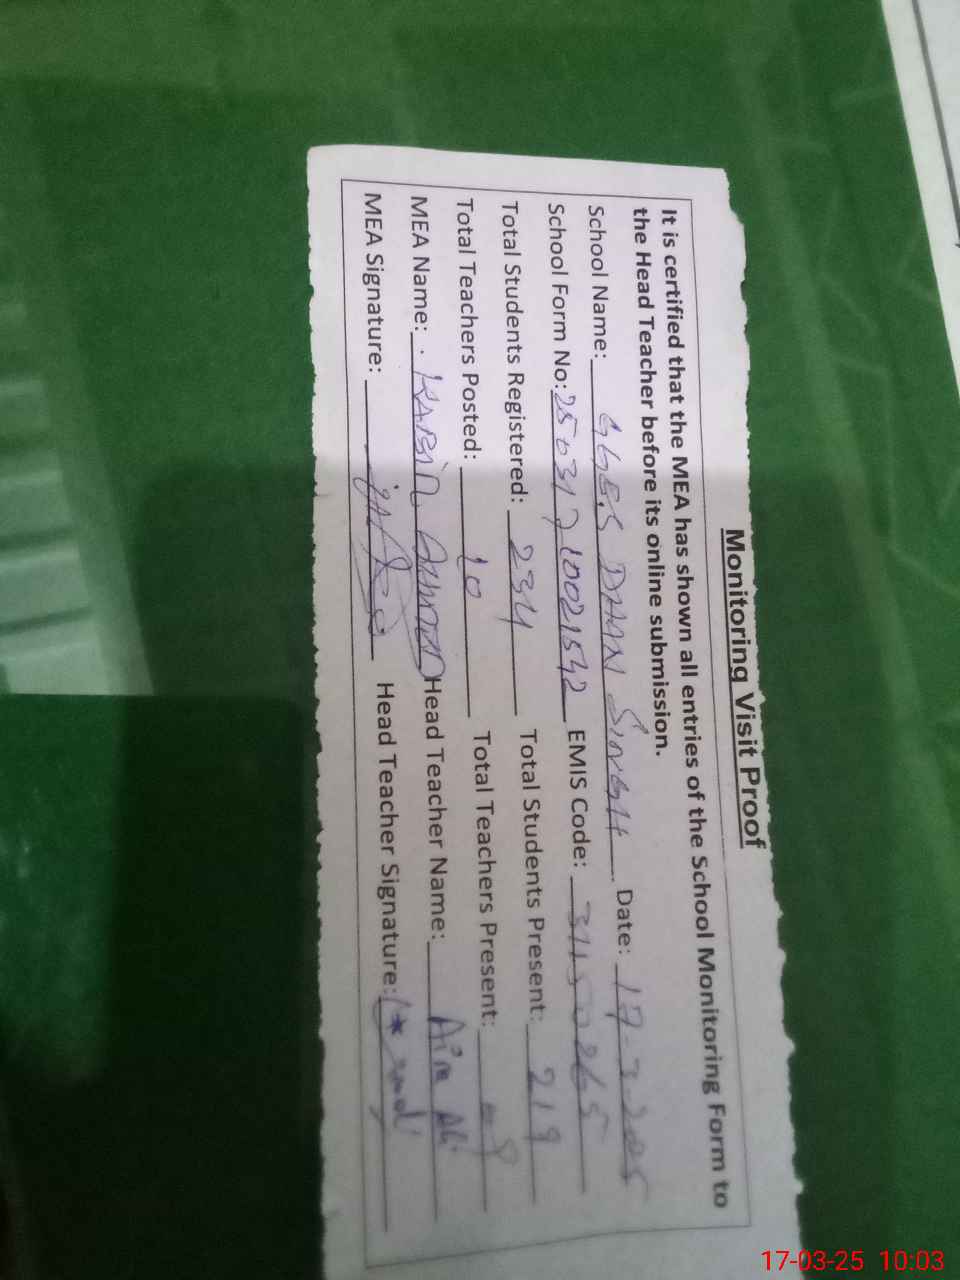 Monitoring Visit Proof
It is certified that the MEA has shown all entries of the School Monitoring Form to
the Head Teacher before its online submission.
School Name: GGES DHAN SINGH Date: 17-3-2025
School Form No: EMIS Code: 31150265
Total Students Registered: 234 Total Students Present: 219
Total Teachers Posted: 10 Total Teachers Present:
MEA Name: KABIR AHMED Head Teacher Name:
MEA Signature: Head Teacher Signature:
17-03-25 10:03